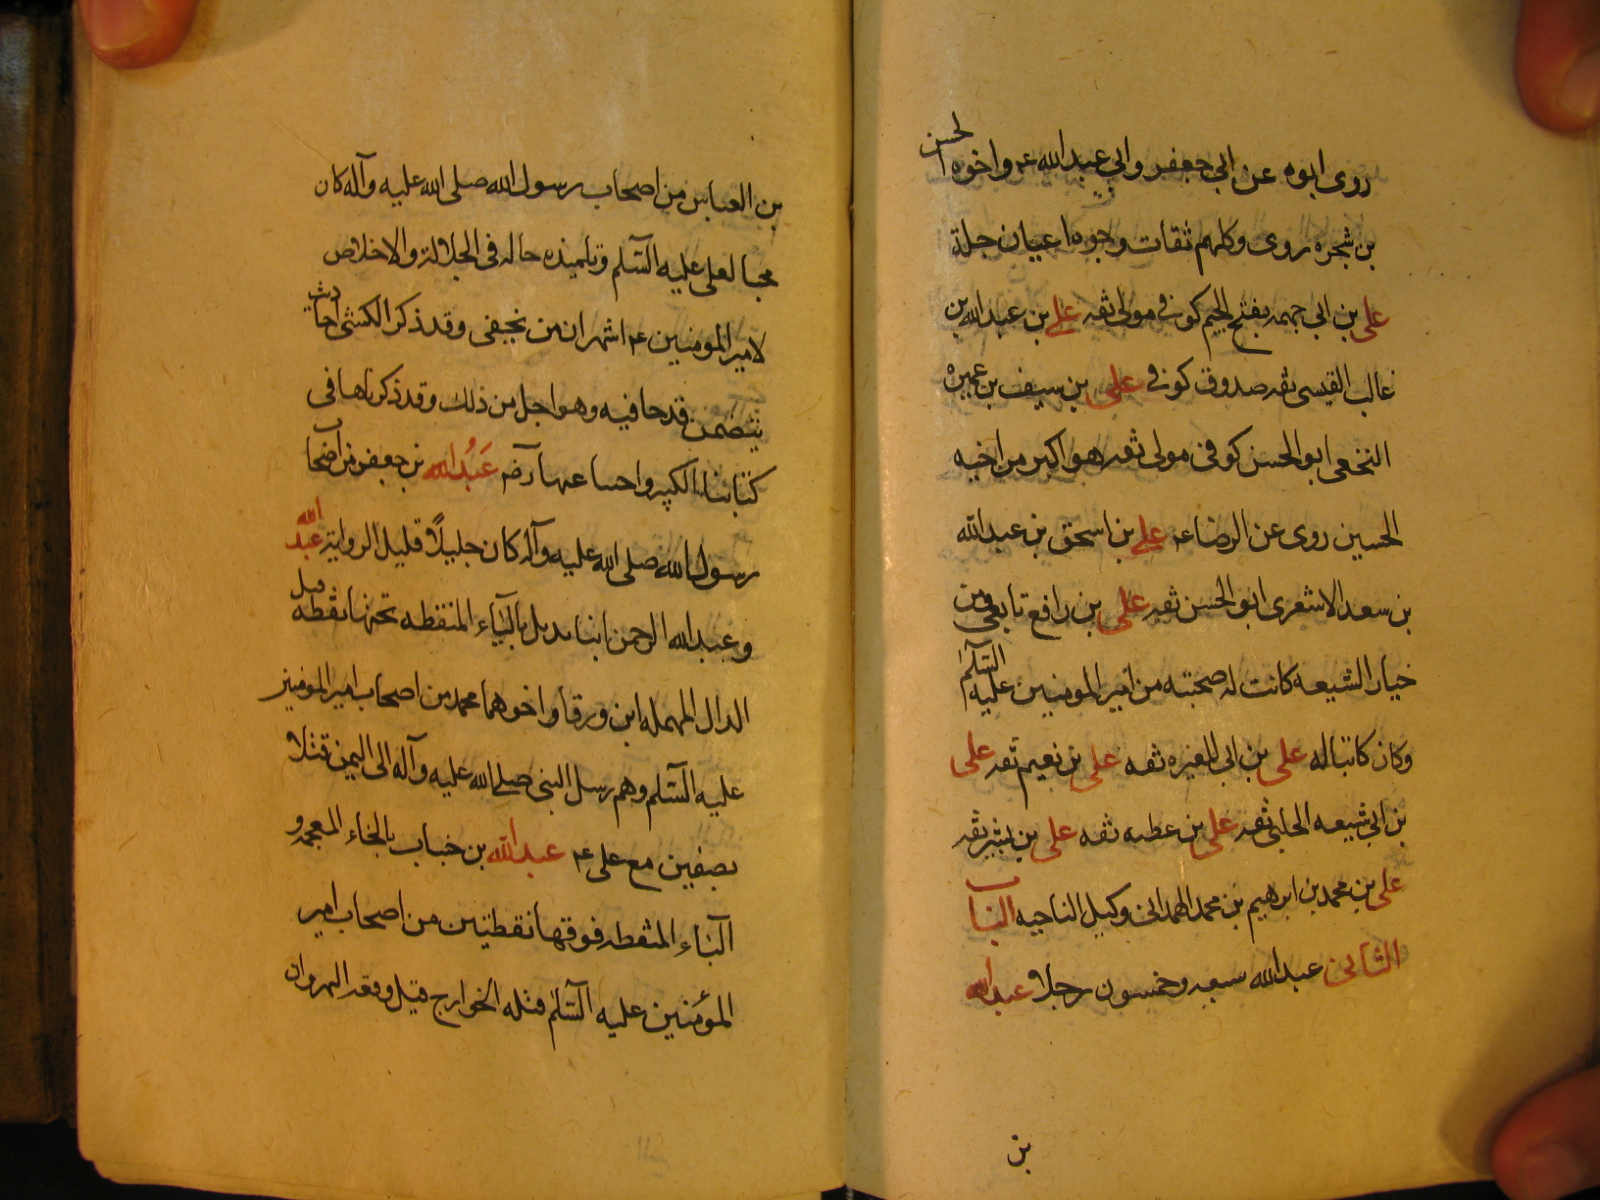 روى ابوه عن ابى جعفر وابى عبدالله ع واخوه الحسن
بن شجره روى وكلهم ثقات وجوه اعيان جلة
على بن ابى جهمه بفتح الجيم كوفى مولى ثقه على بن عبدالله بن
غالب القيسى ثقه صدوق كوفى على بن سيف بن عميره
النخعى ابو الحسن كوفى مولى ثقه هو اكبر من اخيه
الحسين روى عن الرضا ع على بن اسحق بن عبدالله
بن سعد الاشعرى ابو الحسن ثقه على بن رافع تابعى ومن
خيار الشيعه كانت له صحبته من امير المومنين عليه السلام
وكان كاتبا له على بن ابى المغيره ثقه على بن نعيم ثقه على
بن ابى شيعه الحلبى ثقه على بن عطيه ثقه على بن بشير ثقه
على بن محمد بن ابرهيم بن محمد الهمدانى وكيل الناحيه الباب
الثانى عبدالله سبعه وخمسون رجلا عبدالله
بن
بن العباس من اصحاب رسول الله صلى الله عليه وآله كان
محبا لعلى عليه السلم وتلميذه حاله فى الجلالة والاخلاص
لامير المومنين ع اشهر ان من يخفى وقد ذكر الكشى احاديث
يتضمن قدحا فيه وهو اجل من ذلك وقد ذكرناها فى
كتابنا الكبير واجبنا عنها رضه عبدالله بن جعفر من اصحاب
رسول الله صلى الله عليه وآله كان جليلا قليل الروايه عبدالله
وعبدالله الرحمن ابنا بديل بالباء المنقطه تحتها نقطه قبل
الدال المهمله ابن ورقا واخوهما محمد من اصحاب امير المومنين
عليه السلم وهم رسل النبى صلى الله عليه وآله الى اليمن قتلا
بصفين مع على ع عبدالله بن خباب بالخاء المعجمه و
الباء المنقطه فوقها نقطتين من اصحاب امير
المؤمنين عليه السلم قتله الخوارج قبل وقعه النهروان